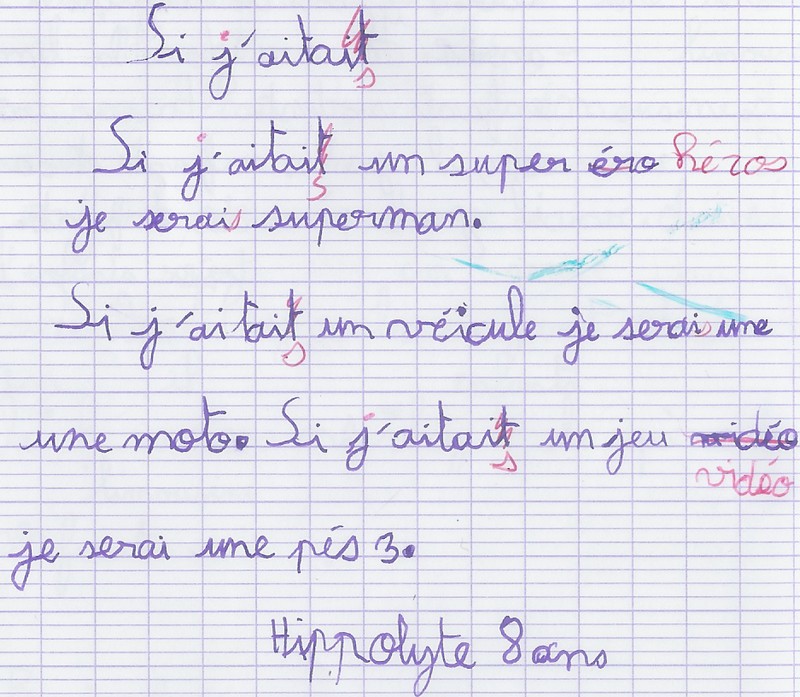 Si j'aitait s
Si j'aitait s un super éro héros
je serais superman.
Si j'aitait s un véicule je serais une
une moto. Si j'aitait s un jeu vidéo
vidéo
je serai une pés 3.
Hippolyte 8 ans